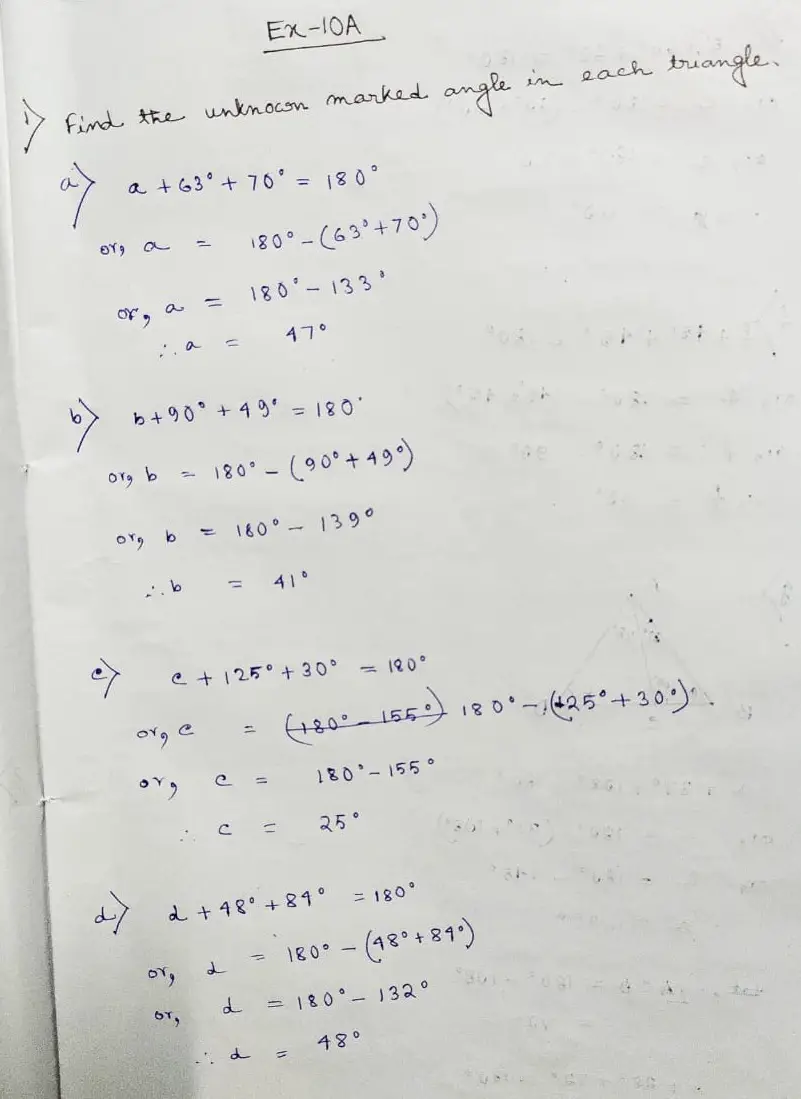 Ex-10A
i) Find the unknown marked angle in each triangle.
a) a + 63° + 70° = 180°
or, a = 180° - (63° + 70°)
or, a = 180° - 133°
∴ a = 47°
b) b + 90° + 49° = 180°
or, b = 180° - (90° + 49°)
or, b = 180° - 139°
∴ b = 41°
c) c + 125° + 30° = 180°
or, c = (180° - 155°) 180° - (125° + 30°)
or, c = 180° - 155°
∴ c = 25°
d) d + 48° + 84° = 180°
or, d = 180° - (48° + 84°)
or, d = 180° - 132°
∴ d = 48°